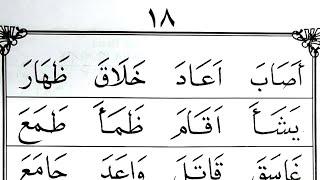 ١٨
اَصَابَ اَعَادَ خَلَاقَ ظَهَارَ
يَشَأَ اَقَامَ ظَمَأَ طَمَعَ
غَاسَقَ قَاتَلَ وَاعَدَ جَامَعَ